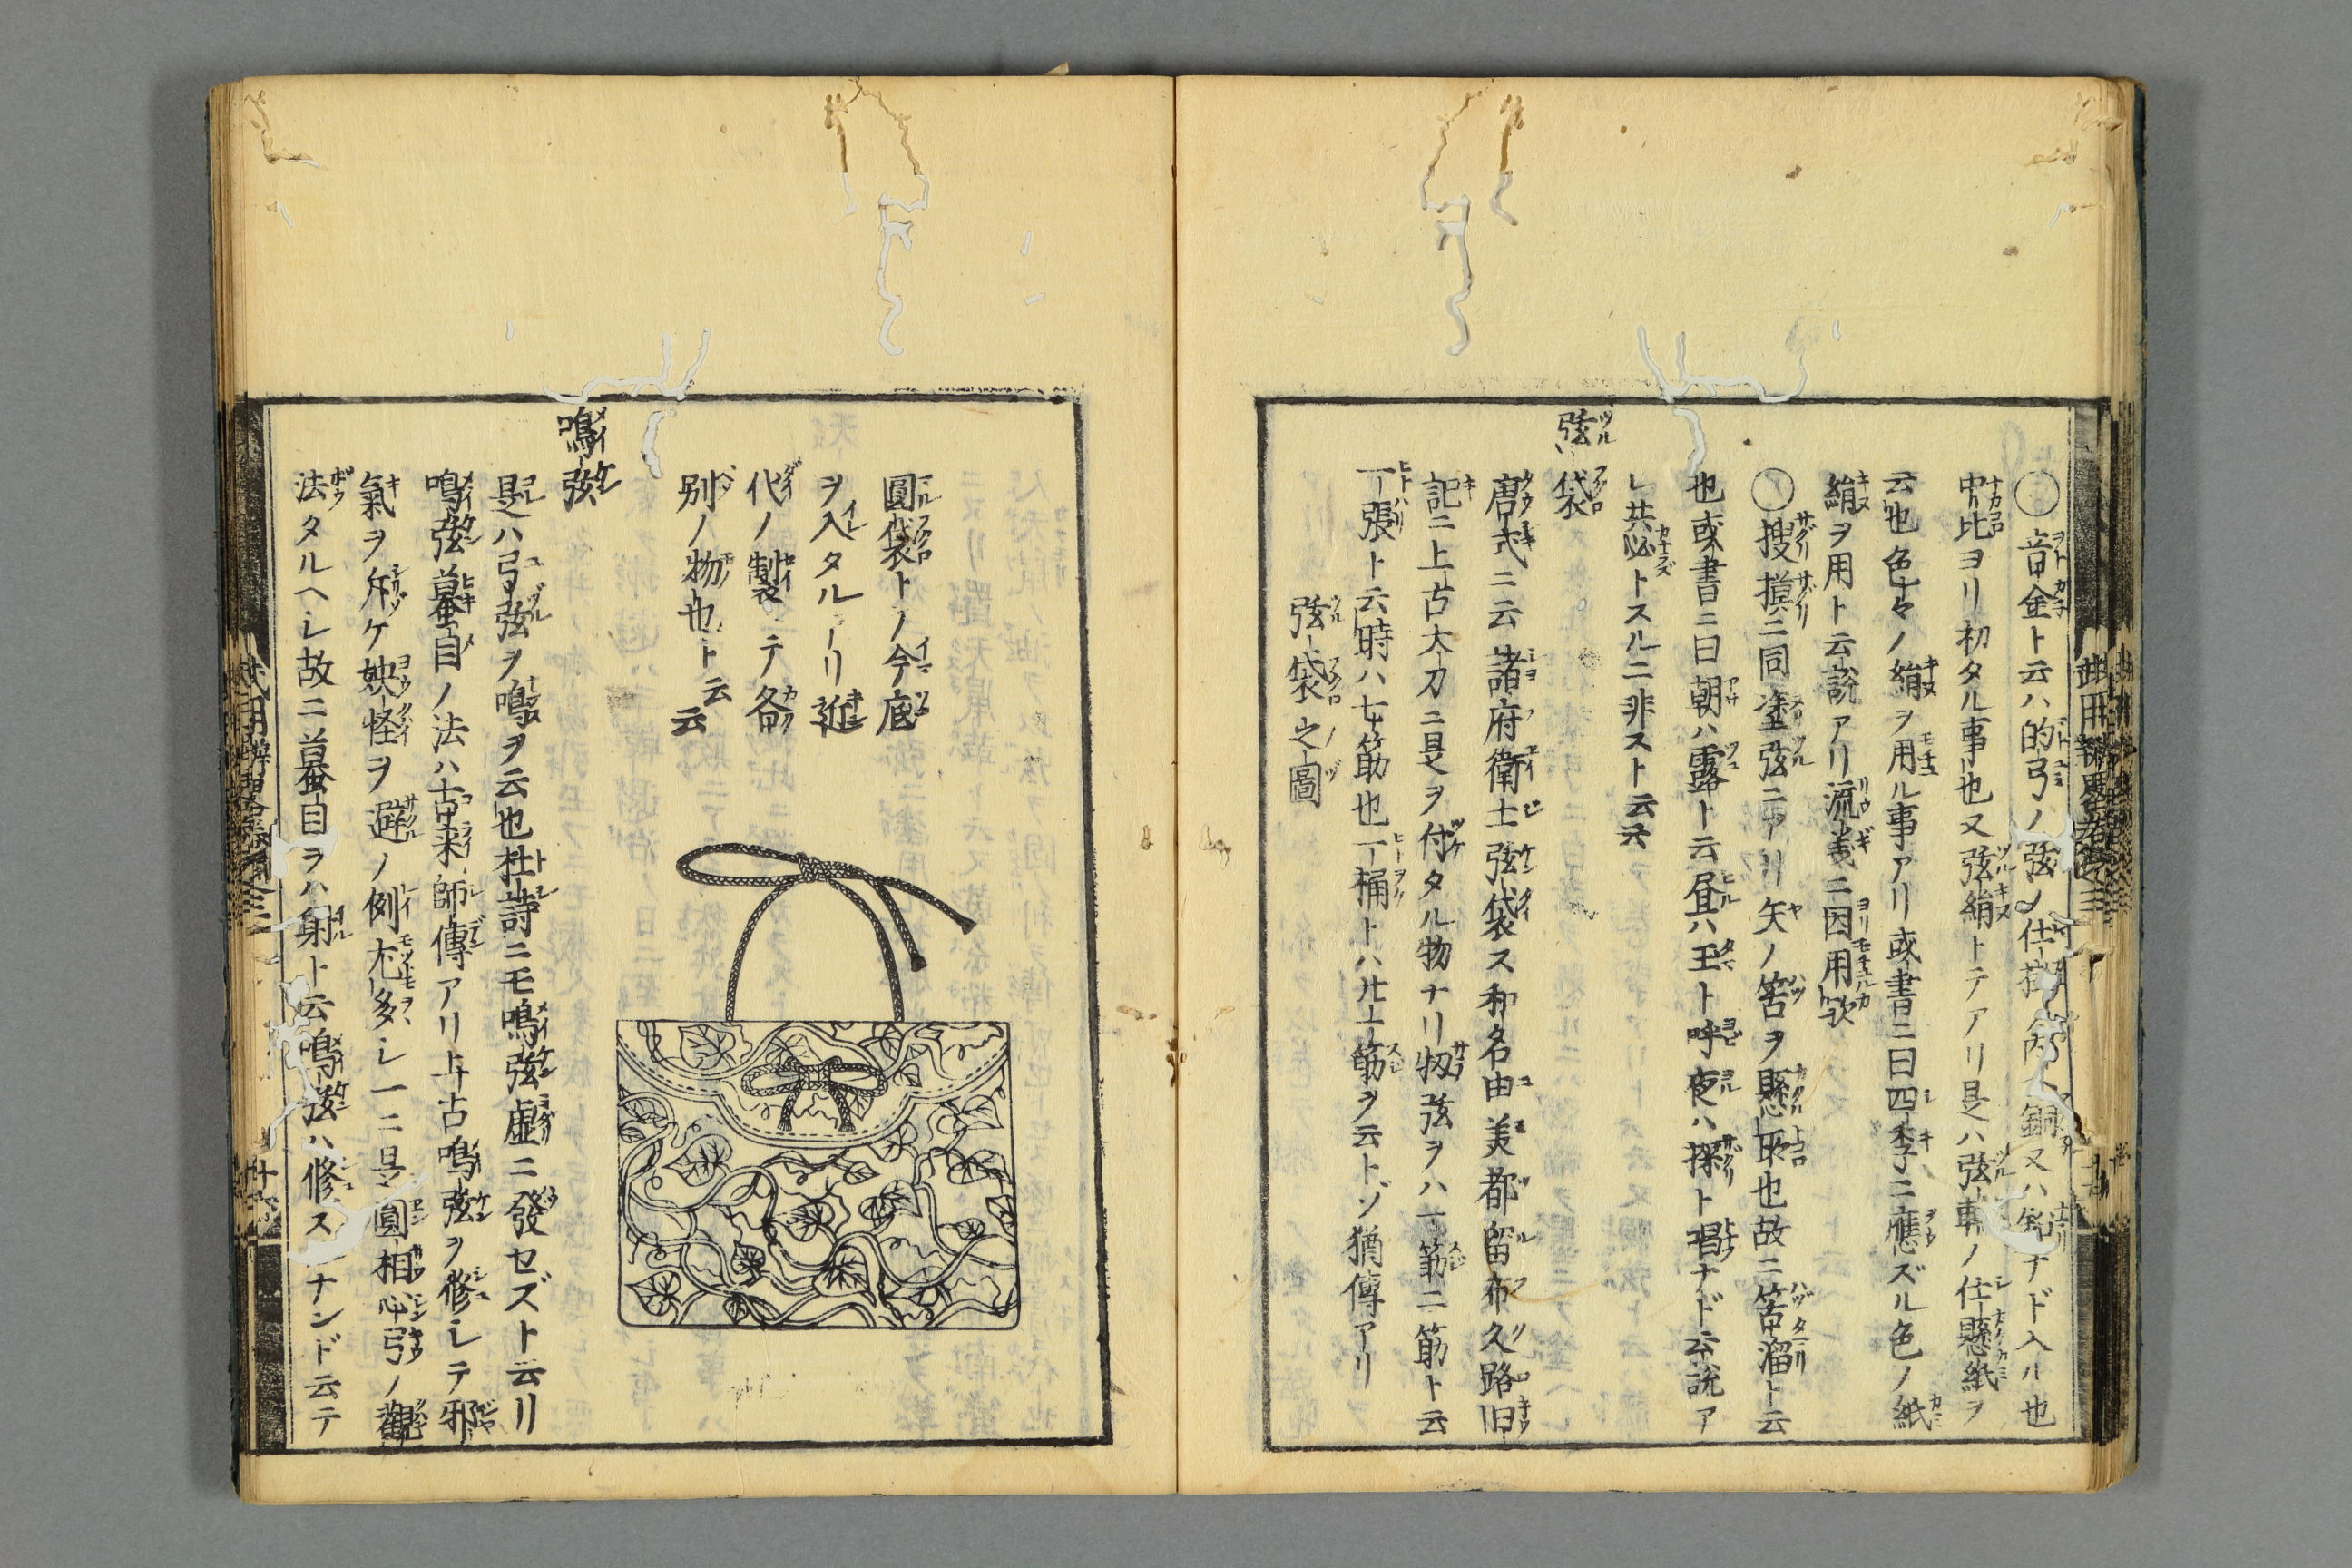 ○音金ト云ハ的弓ノ弦ノ仕掛 銅又ハ鉛ナド入ル也
中比ヨリ初タル事也又弦絹トテアリ是ハ弦車ノ仕懸紙ヲ
云也色々ノ絹ヲ用ル事アリ或書ニ曰四季ニ應ズル色ノ紙
絹ヲ用ト云説アリ流義ニ因用歟
○搜摸ニ同塗弦ニアリ矢ノ筈ヲ懸所也故ニ筈溜ト云
也或書ニ曰朝ハ露ト云昼ハ玉ト呼夜ハ探ト唱ナド云説ア
レ共必トスルニ非スト云云
弦袋
唐式ニ云諸府衛士弦袋ス和名由美都留布久路旧
記ニ上古太刀ニ是ヲ付タル物ナリ扨弦ヲハ一筋二筋ト云
一張ト云時ハ七筋也一桶ト八廿一筋ヲ云トゾ猶傳アリ
弦袋之圖
圓袋トノ今底
ヲ入タルアリ近
代ノ製ニテ各
別ノ物也ト云云
鳴弦
是ハ弓弦ヲ鳴ヲ云也杜詩ニモ鳴弦虚ニ發セズト云リ
鳴弦蟇目ノ法ハ古来師傳アリ上古鳴弦ヲ修シテ邪
氣ヲ斥ケ妖怪ヲ避ノ例尤多シ一ニ是圓相心弓ノ觀
法タルヘシ故ニ蟇目ヲハ射ト云鳴弦ハ修スナンド云テ